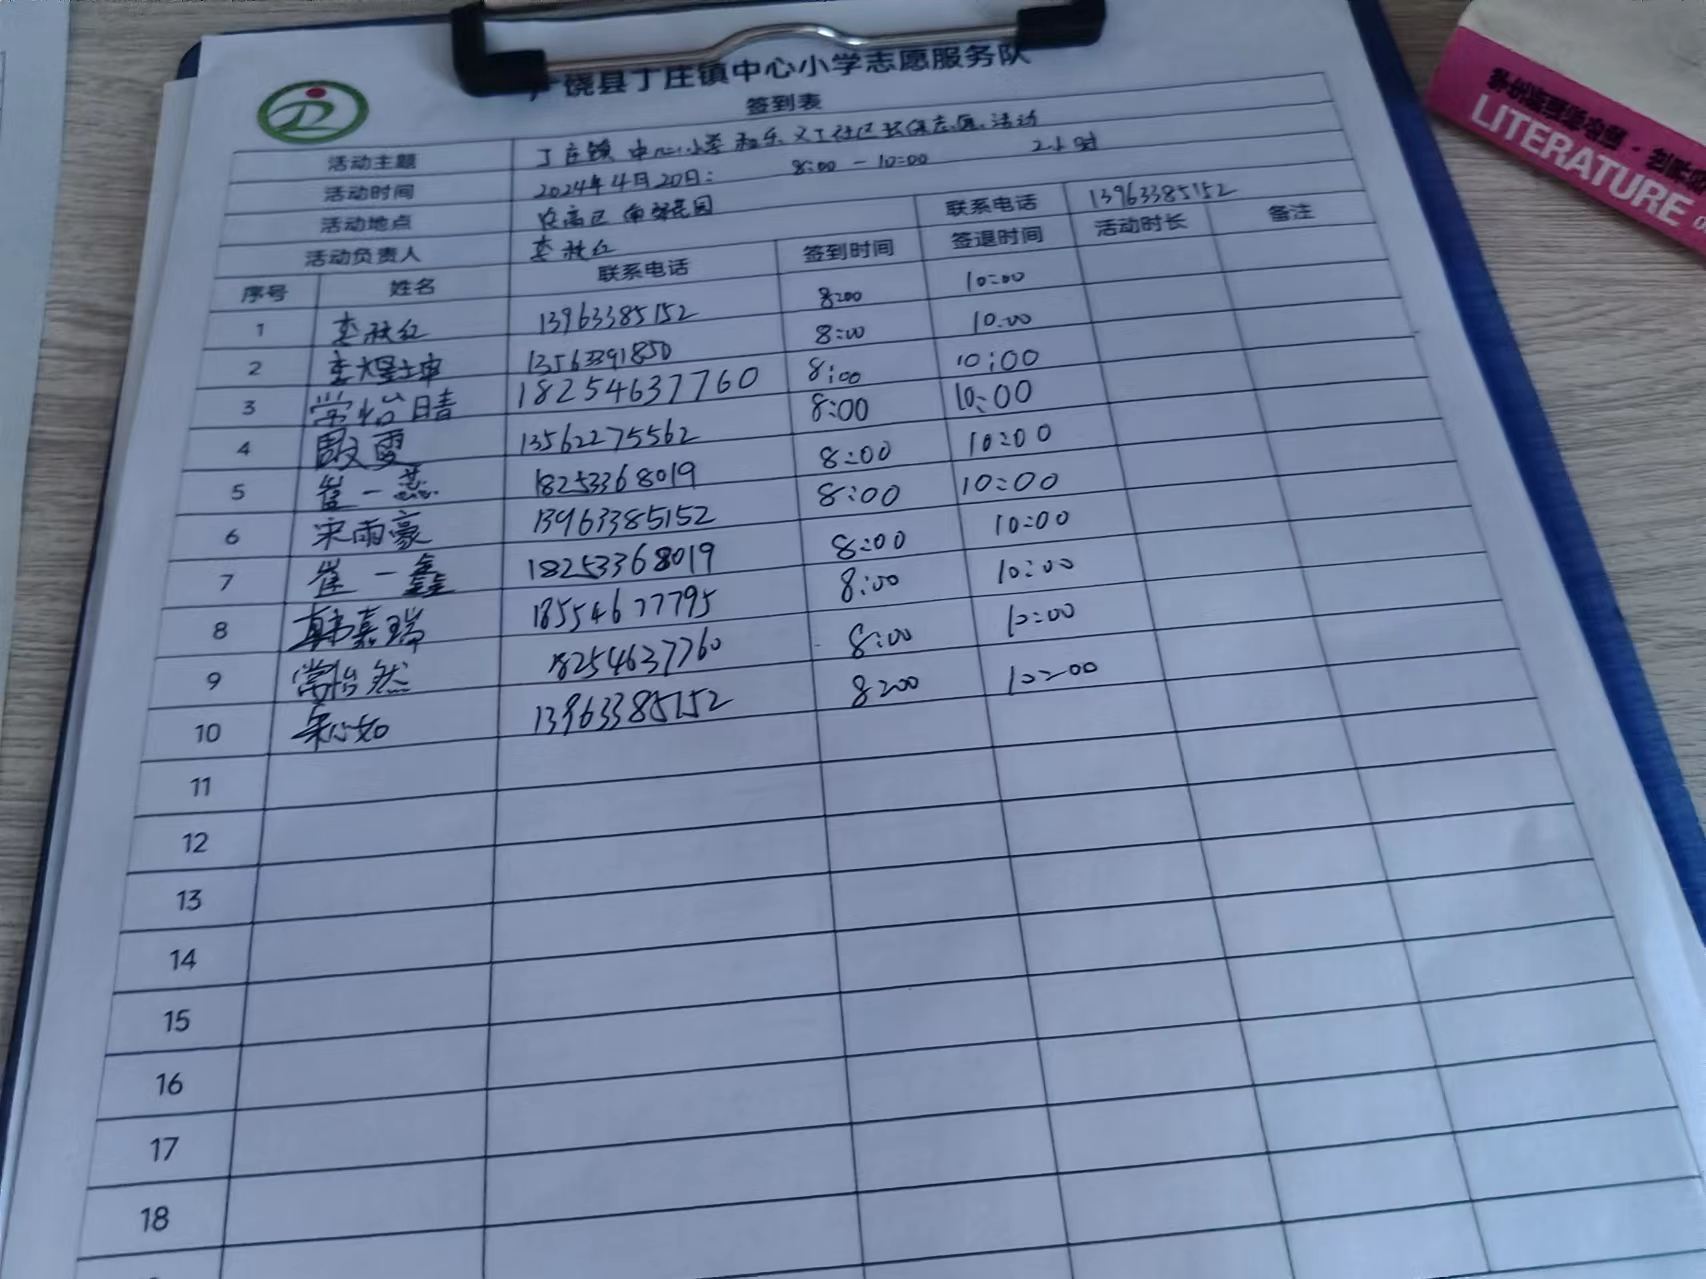 饶县丁庄镇中心小学志愿服务队
签到表
活动主题 丁庄镇中心小学和乐义工社区环保志愿活动
活动时间 2024年4月20日: 8:00-10:00 2小时
活动地点 农高区
活动负责人 李秋红 联系电话 13963385152
序号 姓名 联系电话 签到时间 签退时间 活动时长 备注
1 李秋红 13963385152 8:00 10:00
2 李煜坤 13563391850 8:00 10:00
3 常怡晴 18254637760 8:00 10:00
4 13562275562 8:00 10:00
5 崔一 18253368019 8:00 10:00
6 宋雨豪 13963385152 8:00 10:00
7 崔一鑫 18253368019 8:00 10:00
8 韩嘉瑞 18554677795 8:00 10:00
9 常怡然 18254637760 8:00 10:00
10 13963385152 8:00 10:00
11
12
13
14
15
16
17
18
LITERATURE